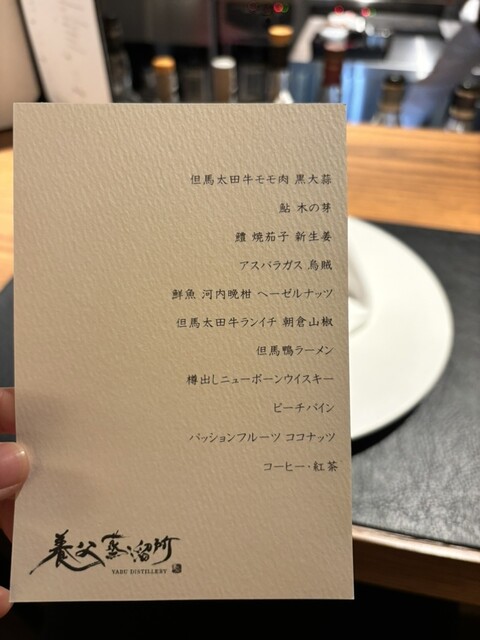 但馬太田牛モモ肉 黒大蒜
鮎 木の芽
鱧 焼茄子 新生姜
アスパラガス 烏賊
鮮魚 河内晩柑 ヘーゼルナッツ
但馬太田牛ランイチ 朝倉山椒
但馬鴨ラーメン
樽出しニューボーンウイスキー
ピーチパイン
パッションフルーツ ココナッツ
コーヒー・紅茶
養父蒸溜所
YABU DISTILLERY